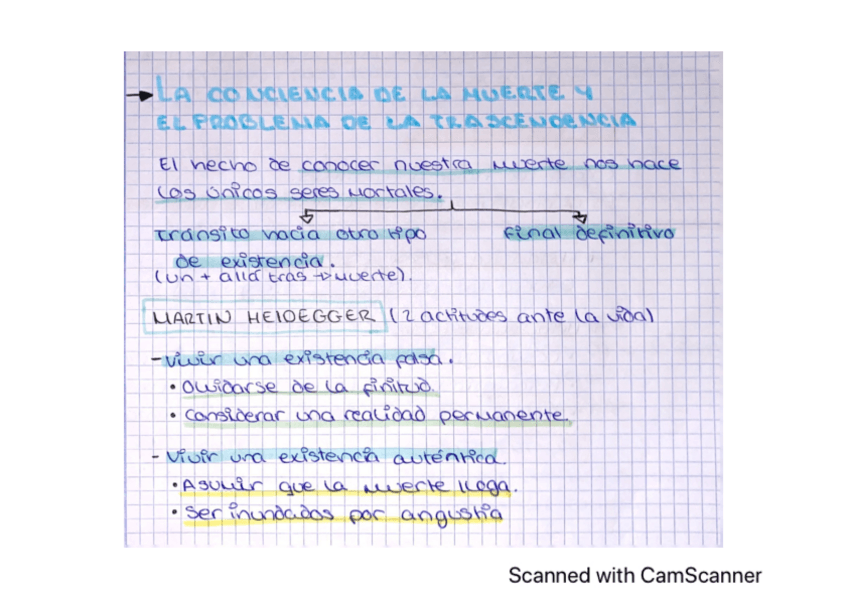 → LA CONCIENCIA DE LA MUERTE Y
EL PROBLEMA DE LA TRASCENDENCIA
El hecho de conocer nuestra muerte nos hace
los únicos seres mortales.
Tránsito hacia otro tipo
final definitivo
de existencia.
(un + allá tras → muerte).
MARTIN HEIDEGGER (2 actitudes ante la vida)
- Vivir una existencia falsa.
• Olvidarse de la finitud.
• Considerar una realidad permanente.
- Vivir una existencia auténtica.
• Asumir que la muerte llega.
• Ser inundados por angustia
Scanned with CamScanner